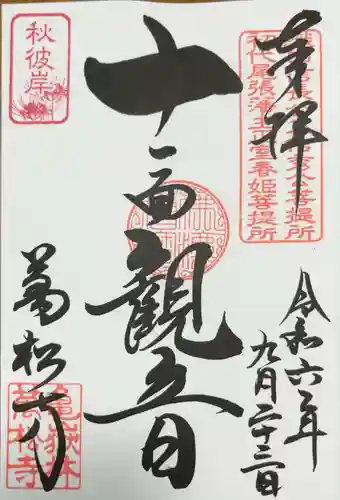 奉拝
初代尾張藩主正室春姫菩提所
令和六年
九月二十三日
十一面觀音
秋彼岸
萬松寺
亀嶽林
萬松寺